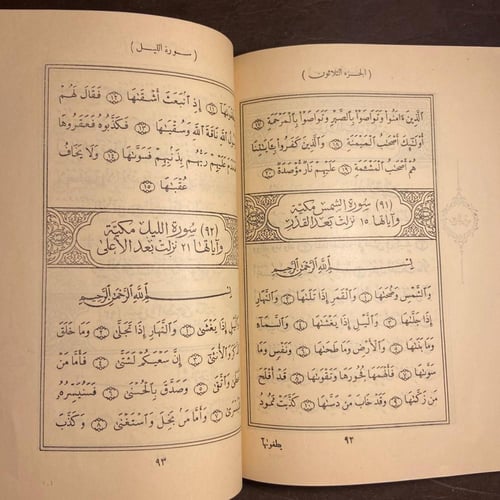 (الجزء الثلاثون)
الَّذِينَ ءَامَنُوا۟ وَتَوَاصَوْا۟ بِالصَّبْرِ وَتَوَاصَوْا۟ بِالْمَرْحَمَةِ ١٧
أُو۟لَٰٓئِكَ أَصْحَٰبُ الْمَيْمَنَةِ ١٨ وَالَّذِينَ كَفَرُوا۟ بِـَٔايَٰتِنَا
هُمْ أَصْحَٰبُ الْمَشْـَٔمَةِ ١٩ عَلَيْهِمْ نَارٌ مُّؤْصَدَةٌ ٢٠
(٩١) سُورَةُ الشَّمْسِ مَكِّيَّة
وَآيَاتُهَا ١٥ نَزَلَتْ بَعْدَ الْقَدْرِ
بِسْمِ اللَّهِ الرَّحْمَٰنِ الرَّحِيمِ
وَالشَّمْسِ وَضُحَىٰهَا ١ وَالْقَمَرِ إِذَا تَلَىٰهَا ٢ وَالنَّهَارِ
إِذَا جَلَّىٰهَا ٣ وَالَّيْلِ إِذَا يَغْشَىٰهَا ٤ وَالسَّمَآءِ
وَمَا بَنَىٰهَا ٥ وَالْأَرْضِ وَمَا طَحَىٰهَا ٦ وَنَفْسٍ وَمَا
سَوَّىٰهَا ٧ فَأَلْهَمَهَا فُجُورَهَا وَتَقْوَىٰهَا ٨ قَدْ أَفْلَحَ
مَن زَكَّىٰهَا ٩ وَقَدْ خَابَ مَن دَسَّىٰهَا ١٠ كَذَّبَتْ ثَمُودُ
بطغوىٰها
٩٢
(سورة الليل)
بِطَغْوَىٰهَآ ١١ إِذِ انۢبَعَثَ أَشْقَىٰهَا ١٢ فَقَالَ لَهُمْ
رَسُولُ اللَّهِ نَاقَةَ اللَّهِ وَسُقْيَٰهَا ١٣ فَكَذَّبُوهُ فَعَقَرُوهَا
فَدَمْدَمَ عَلَيْهِمْ رَبُّهُم بِذَنۢبِهِمْ فَسَوَّىٰهَا ١٤ وَلَا يَخَافُ
عُقْبَٰهَا ١٥
(٩٢) سُورَةُ اللَّيْلِ مَكِّيَّة
وَآيَاتُهَا ٢١ نَزَلَتْ بَعْدَ الْأَعْلَىٰ
بِسْمِ اللَّهِ الرَّحْمَٰنِ الرَّحِيمِ
وَالَّيْلِ إِذَا يَغْشَىٰ ١ وَالنَّهَارِ إِذَا تَجَلَّىٰ ٢ وَمَا خَلَقَ
الذَّكَرَ وَالْأُنثَىٰٓ ٣ إِنَّ سَعْيَكُمْ لَشَتَّىٰ ٤ فَأَمَّا مَنْ
أَعْطَىٰ وَاتَّقَىٰ ٥ وَصَدَّقَ بِالْحُسْنَىٰ ٦ فَسَنُيَسِّرُهُۥ
لِلْيُسْرَىٰ ٧ وَأَمَّا مَنۢ بَخِلَ وَاسْتَغْنَىٰ ٨ وَكَذَّبَ
٩٣